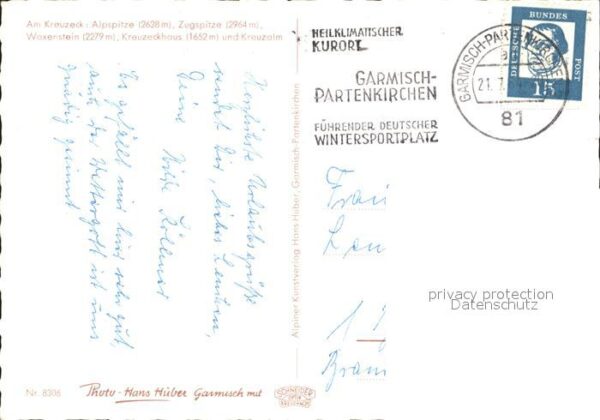 Am Kreuzeck: Alpspitze (2628 m), Zugspitze (2964 m),
Waxenstein (2279 m), Kreuzeckhaus (1652 m) und Kreuzalm
Herzlichste Urlaubsgrüße
sendet Dir, liebes Lenchen,
Deine
Es gefällt mir hier sehr gut,
auch der Wettergott ist uns
gnädig gesinnt
Alpiner Kunstverlag Hans Huber, Garmisch-Partenkirchen
HEILKLIMATISCHER
KURORT
GARMISCH-
PARTENKIRCHEN
FÜHRENDER DEUTSCHER
WINTERSPORTPLATZ
GARMISCH-PARTENKIRCHEN
21.7.
81
DEUTSCHE
BUNDES
POST
15
Frau
Len
1
Bram
privacy protection
Datenschutz
Nr. 8306
Photo-Hans Huber Garmisch mit